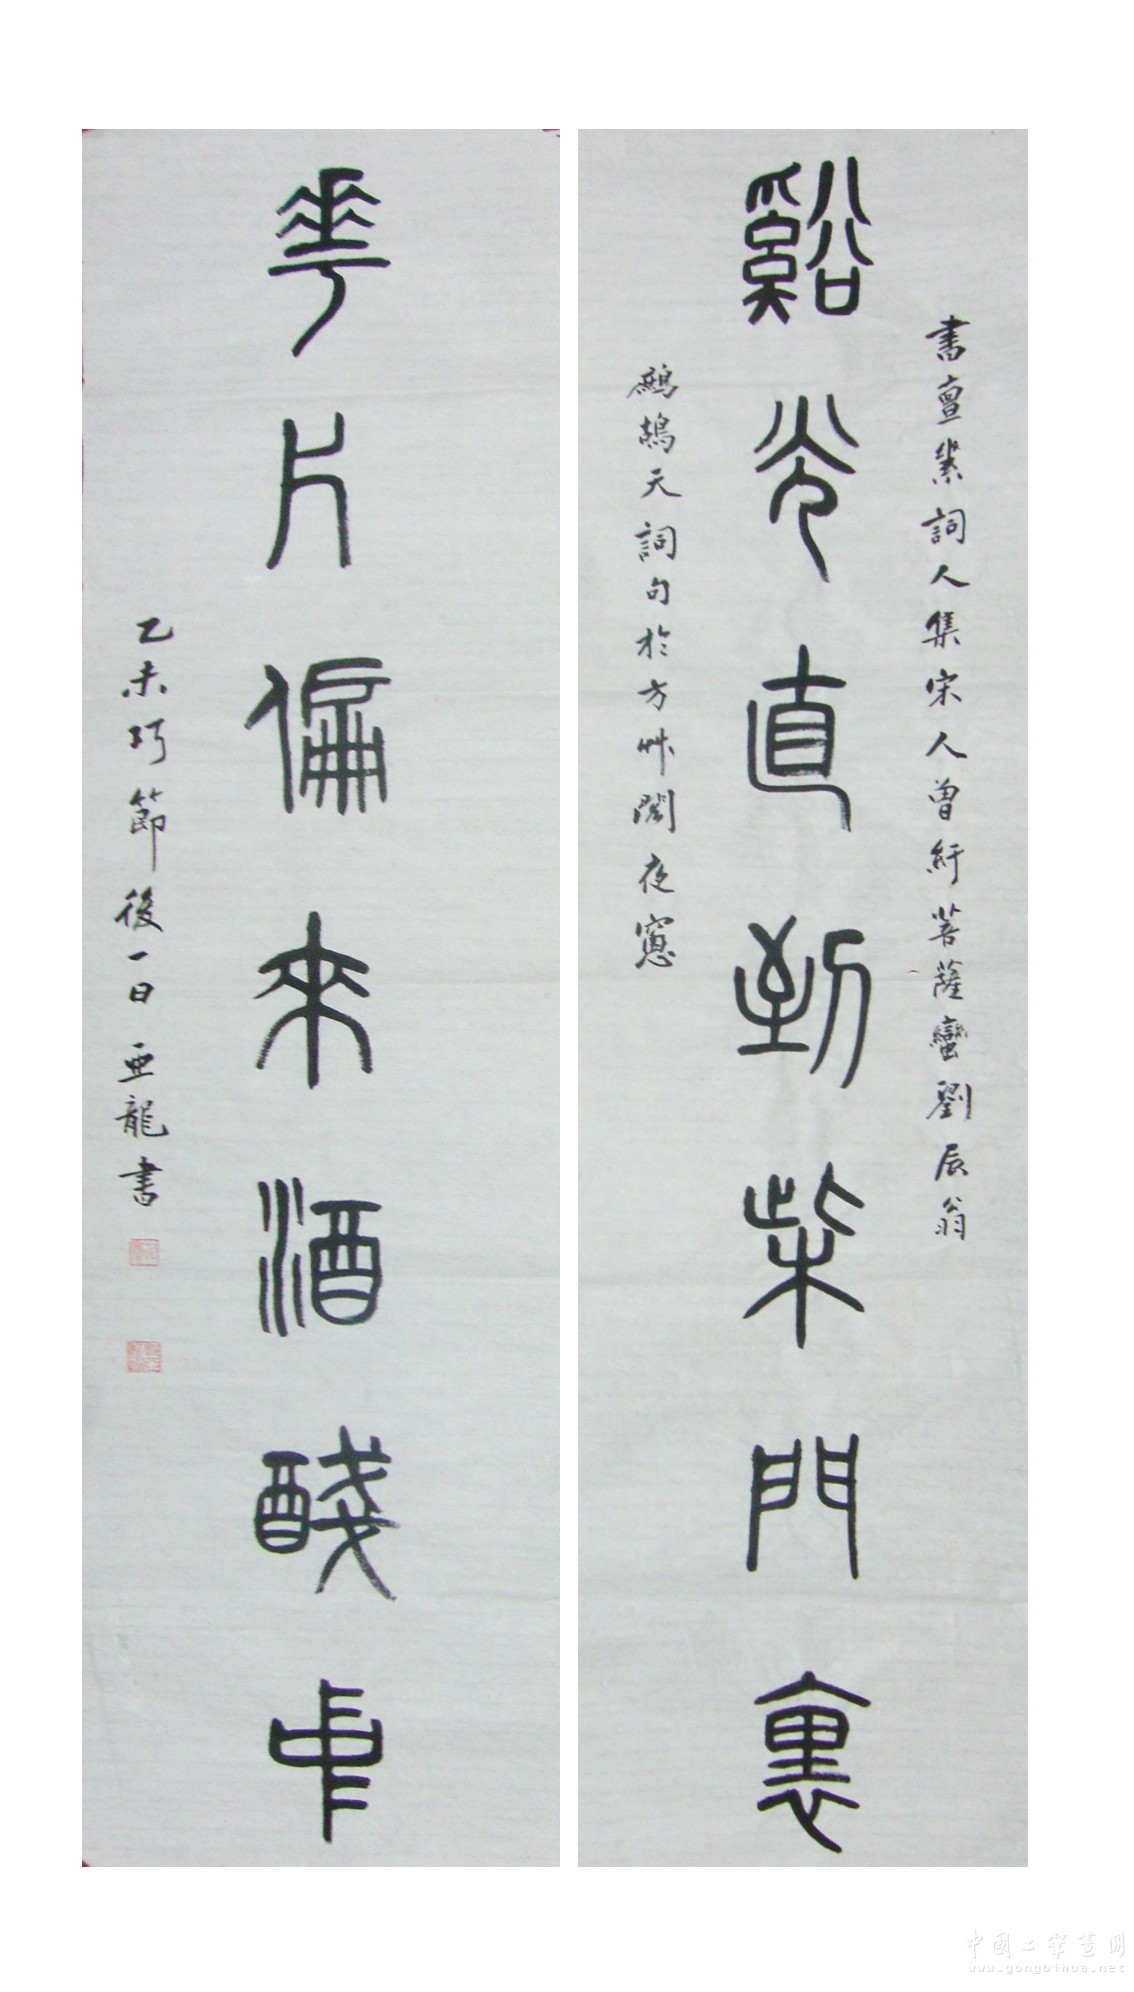 書亶桼詞人集宋人曾紆菩薩蠻劉辰翁
谿光直到柴門裏
鷓鴣天詞句於方艸閣夜窻
華片偏來酒醆中
乙未巧節後一日亞龍書
中國工筆畫網
www.gongbihua.net